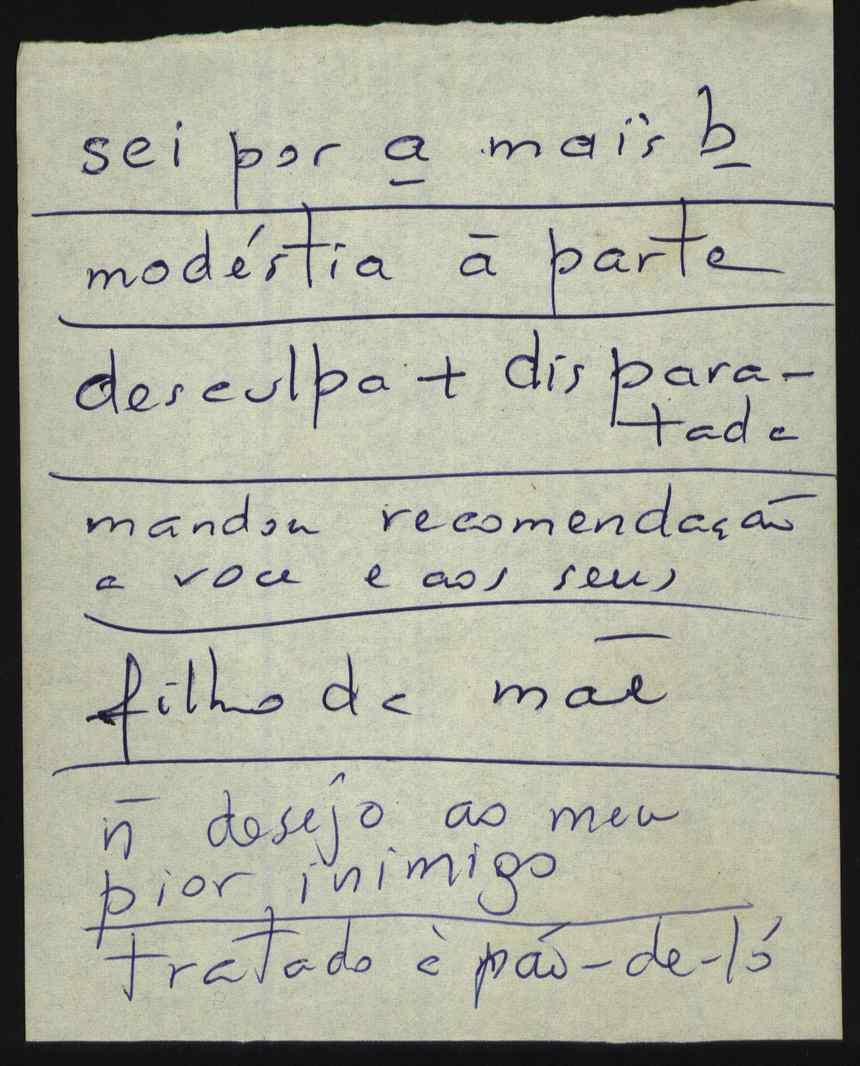 sei por a mais b
modéstia ā parte
desculpa + dispara-
tada
mandou recomendação
a você e aos seus
filho da mãe
n̄ desejo ao meu
pior inimigo
tratado à pão-de-ló